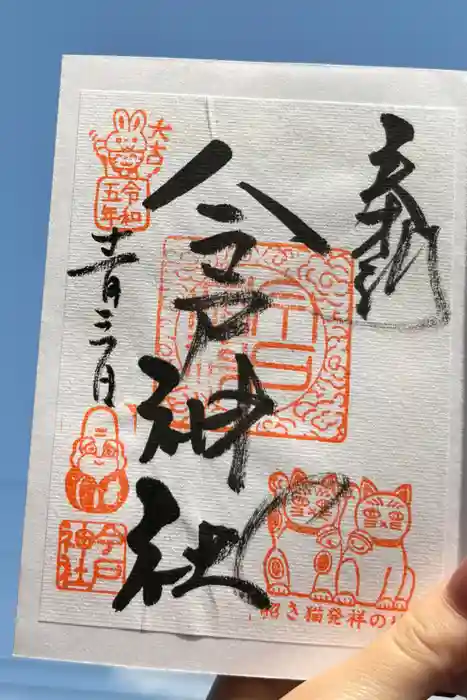 奉拝
今戸神社
大吉
令和
五年
十一月三日
今戸
神社
招き猫発祥の